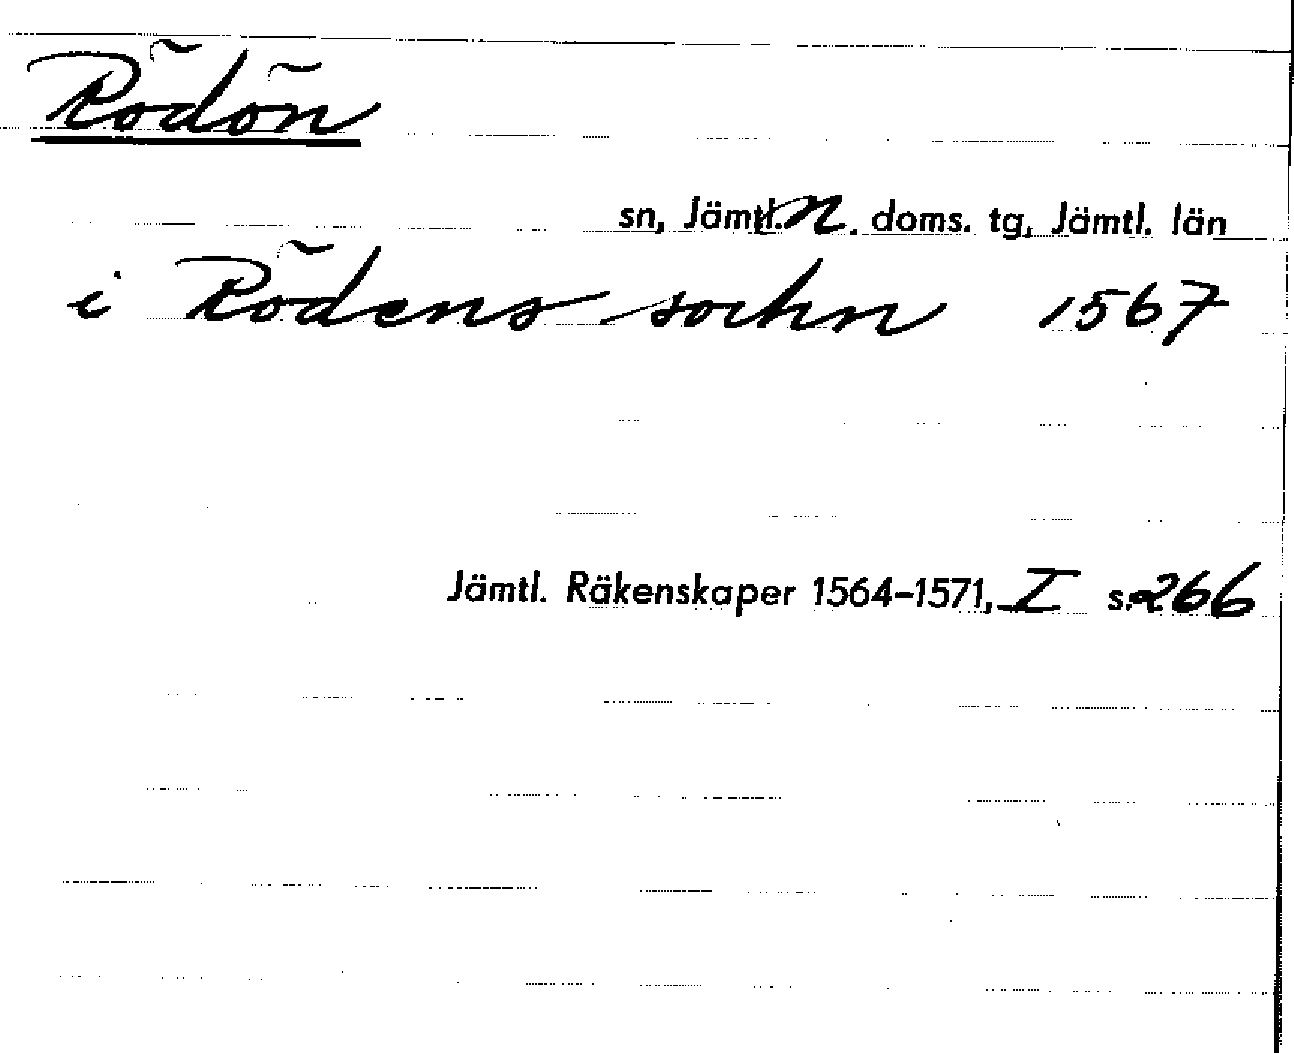 Rödön
sn, Jämtl. n. doms. tg, Jämtl. län
i Rödens sochn 1567
Jämtl. Räkenskaper 1564-1571, I s. 266